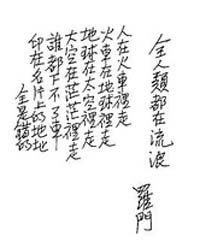 全人類都在流浪
羅門
人在火車裡走
火車在地球裡走
地球在太空裡走
太空在茫茫裡走
誰都下不了車
印在名片上的地址
全是錯的